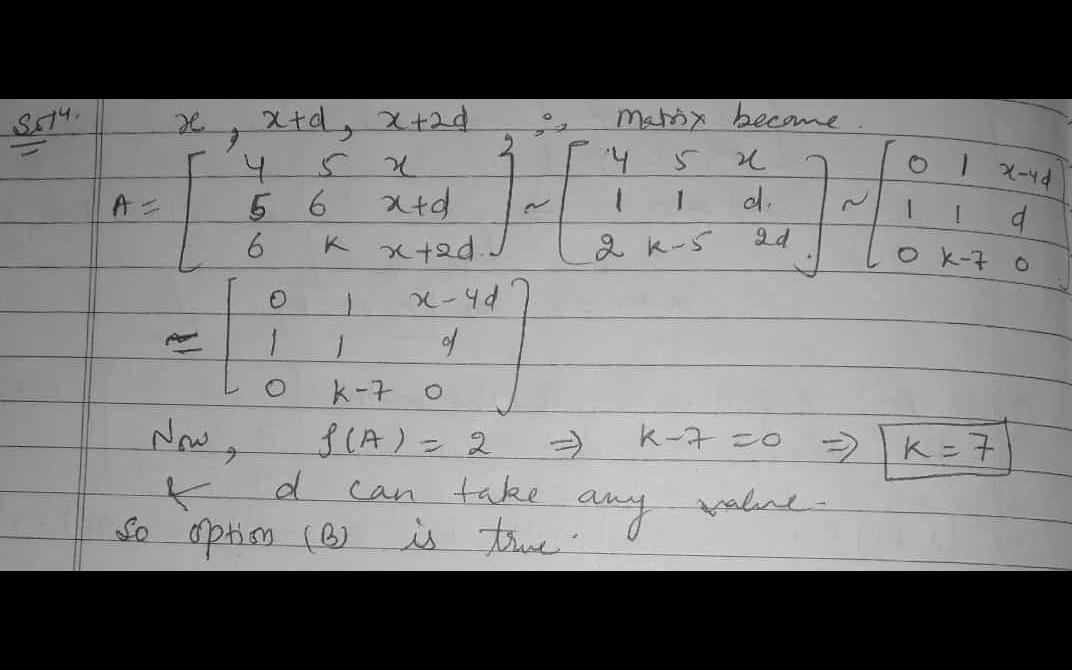 Sol 14. x, x+d, x+2d ∴, matrix become.
A = [ 4 5 x ] ~ [ 4 5 x ] ~ [ 0 1 x-4d ]
[ 5 6 x+d ] [ 1 1 d. ] [ 1 1 d ]
[ 6 k x+2d. ] [ 2 k-5 2d ] [ 0 k-7 0 ]
≃ [ 0 1 x-4d ]
[ 1 1 d ]
[ 0 k-7 0 ]
Now, ρ(A) = 2 ⇒ k-7=0 ⇒ k=7
& d can take any value.
So option (B) is true.